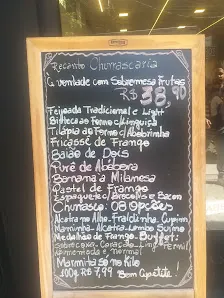 Recanto Churrascaria
à vontade com Sobremesa Frutas
R$ 38,90
Feijoada Tradicional e Light
Bistecas Forno c/ Linguiça
Tilápia ao Forno c/ Abobrinha
Fricassê de Frango
Baião de Dois
Purê de Abóbora
Banana à Milanesa
Pastel de Frango
Espaguete c/ Brócolis e Bacon
Churrasco: 08 Opções
Alcatra no Alho, Fraldinha, Cupim
Maminha, Alcatra, Lombo Suíno
Medalhão de Frango. Buffet:
Coração, Ling. Pernil
Apimentada e Normal
Marmita só no kilo
100g R$ 7,99 Bom Apetite!